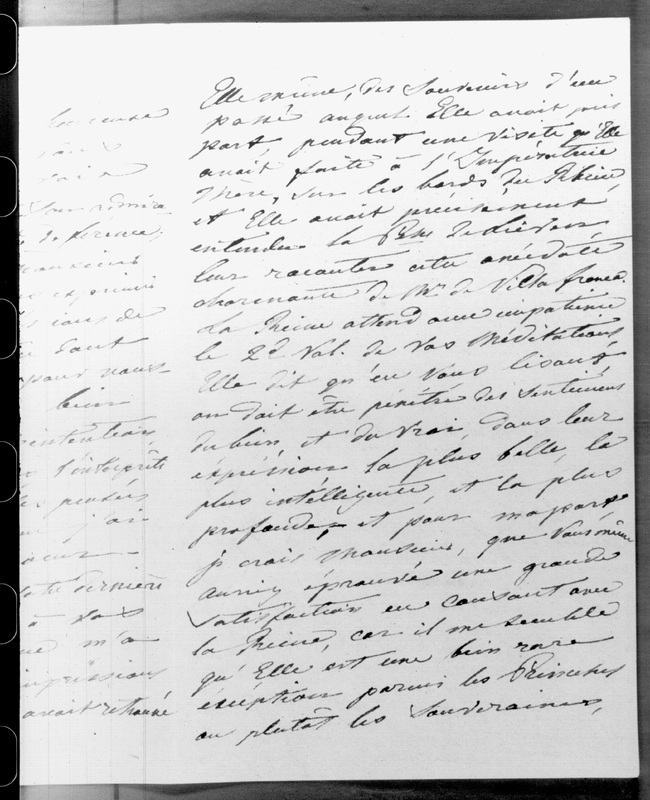 Elle même, des Souvenirs d'un
passé august. Elle avait pris
part, pendant une visite qu'Elle
avait faite à l'Impératrice
Mère, sur les bords du Rhin
et Elle avait précisement
entendu la Pss de Lieven
leur raconter cette anécdote
charmante de Mr de Villafranca.
La Reine attend avec impatience
le 2d Vol. de Vos Méditations
Elle dit qu'en Vous lisant
on doit être pénétré des Sentiments
du bien, et du Vrai, dans leur
expréssion la plus belle, la
plus intelligente, et la plus
profonde; et pour ma part,
je crois Monsieur, que Vous même
auriez éprouvé une grande
Satisfaction en causant avec
la Reine, car il me semble
qu'Elle est une bien rare
éxéption parmi les Princesses
ou plutôt les Souveraines,
déférence.
exprimer
ions de
Tout
pour nous
bien
intentions
l'interprète
pensées
j'ai
dernière
à Vos
m'a
impréssions
avait retrouvé